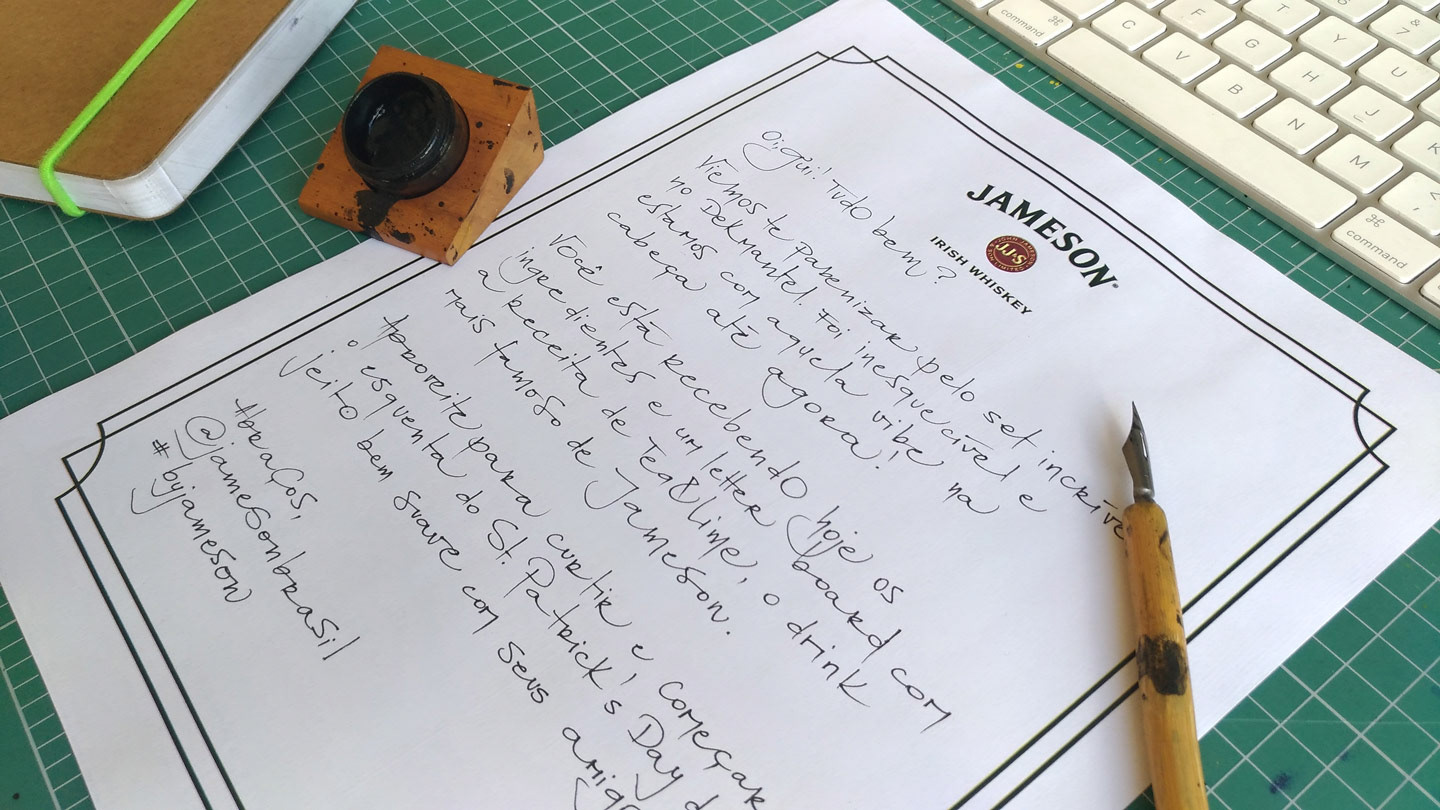 JAMESON
IRISH WHISKEY
JOHN JAMESON
J.J&S
LIMITED
Oi, Gui! Tudo bem?
Viemos te parabenizar pelo set incríve
no Dekmantel. Foi inesquecível e
estamos com aquela vibe na
cabeça até agora!
Você está recebendo hoje os
ingredientes e um letter board com
a receita de Tea&Lime, o drink
mais famoso de Jameson.
Aproveite para curtir e, começar
o esquenta do St. Patrick's Day d
jeito bem suave com seus amigo
Abraços,
@jamesonbrasil
#byjameson
command
⌘
C
V
B
N
M
F
G
H
J
K
T
Y
U
6
&
7
<
,
⌘
command